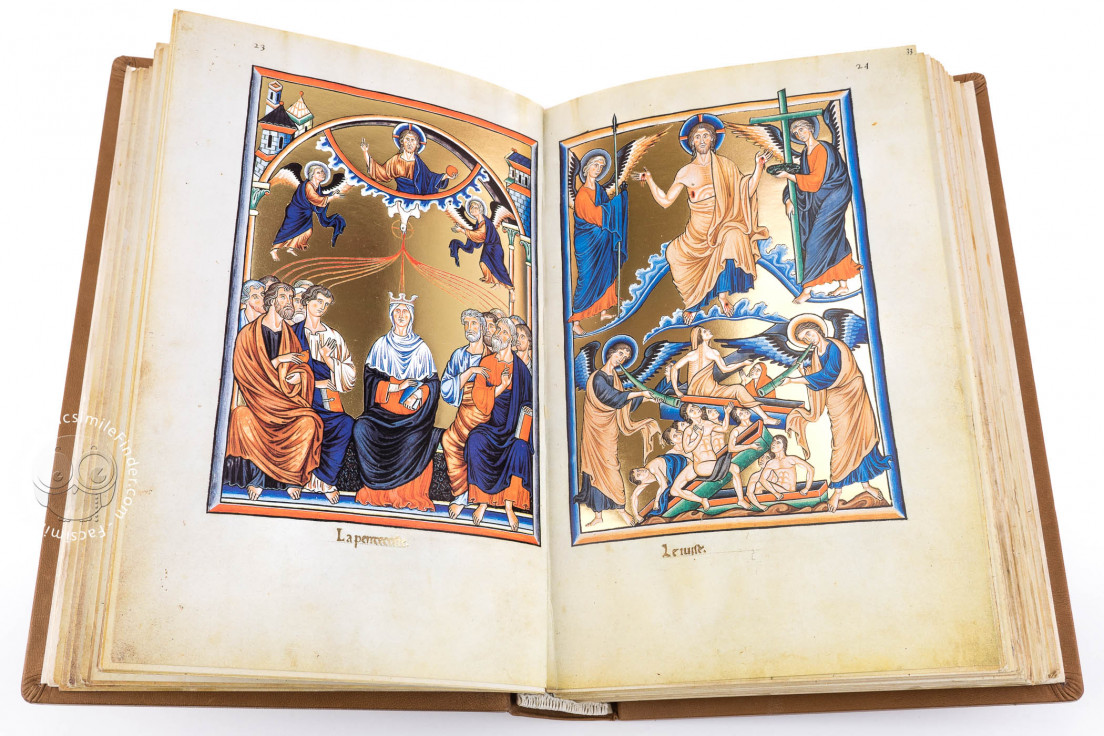 23
La pentecoste
33
24
Le iuise.
FacsimileFinder.com